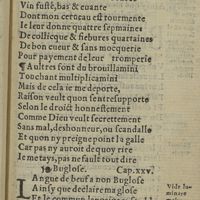 Vin fusté, bas & euante
Dont mon cerueau est tourmente
Ie leur donne quattre sepmaines
De collicque & fiebures quartaines
De bon cueur & sans mocquerie
Pour payement de leur tromperie
¶ Aultres sont du brouillamini
Touchant multiplicamini
Mais de cela ie me deporte,
Raison veult quon sen tresupporte
Selon le droict honnestement
Comme Dieu veult secrettement
Sans mal, deshonneur, ou scandalle
Et quon ny preigne point la galle
Car pas ny auroit de quoy rire
Ie metays, pas ne fault tout dire
Buglose. Cap. xxv.
LAngue de beuf a non Buglose
Ainsy que declaire ma glose
Et le commun